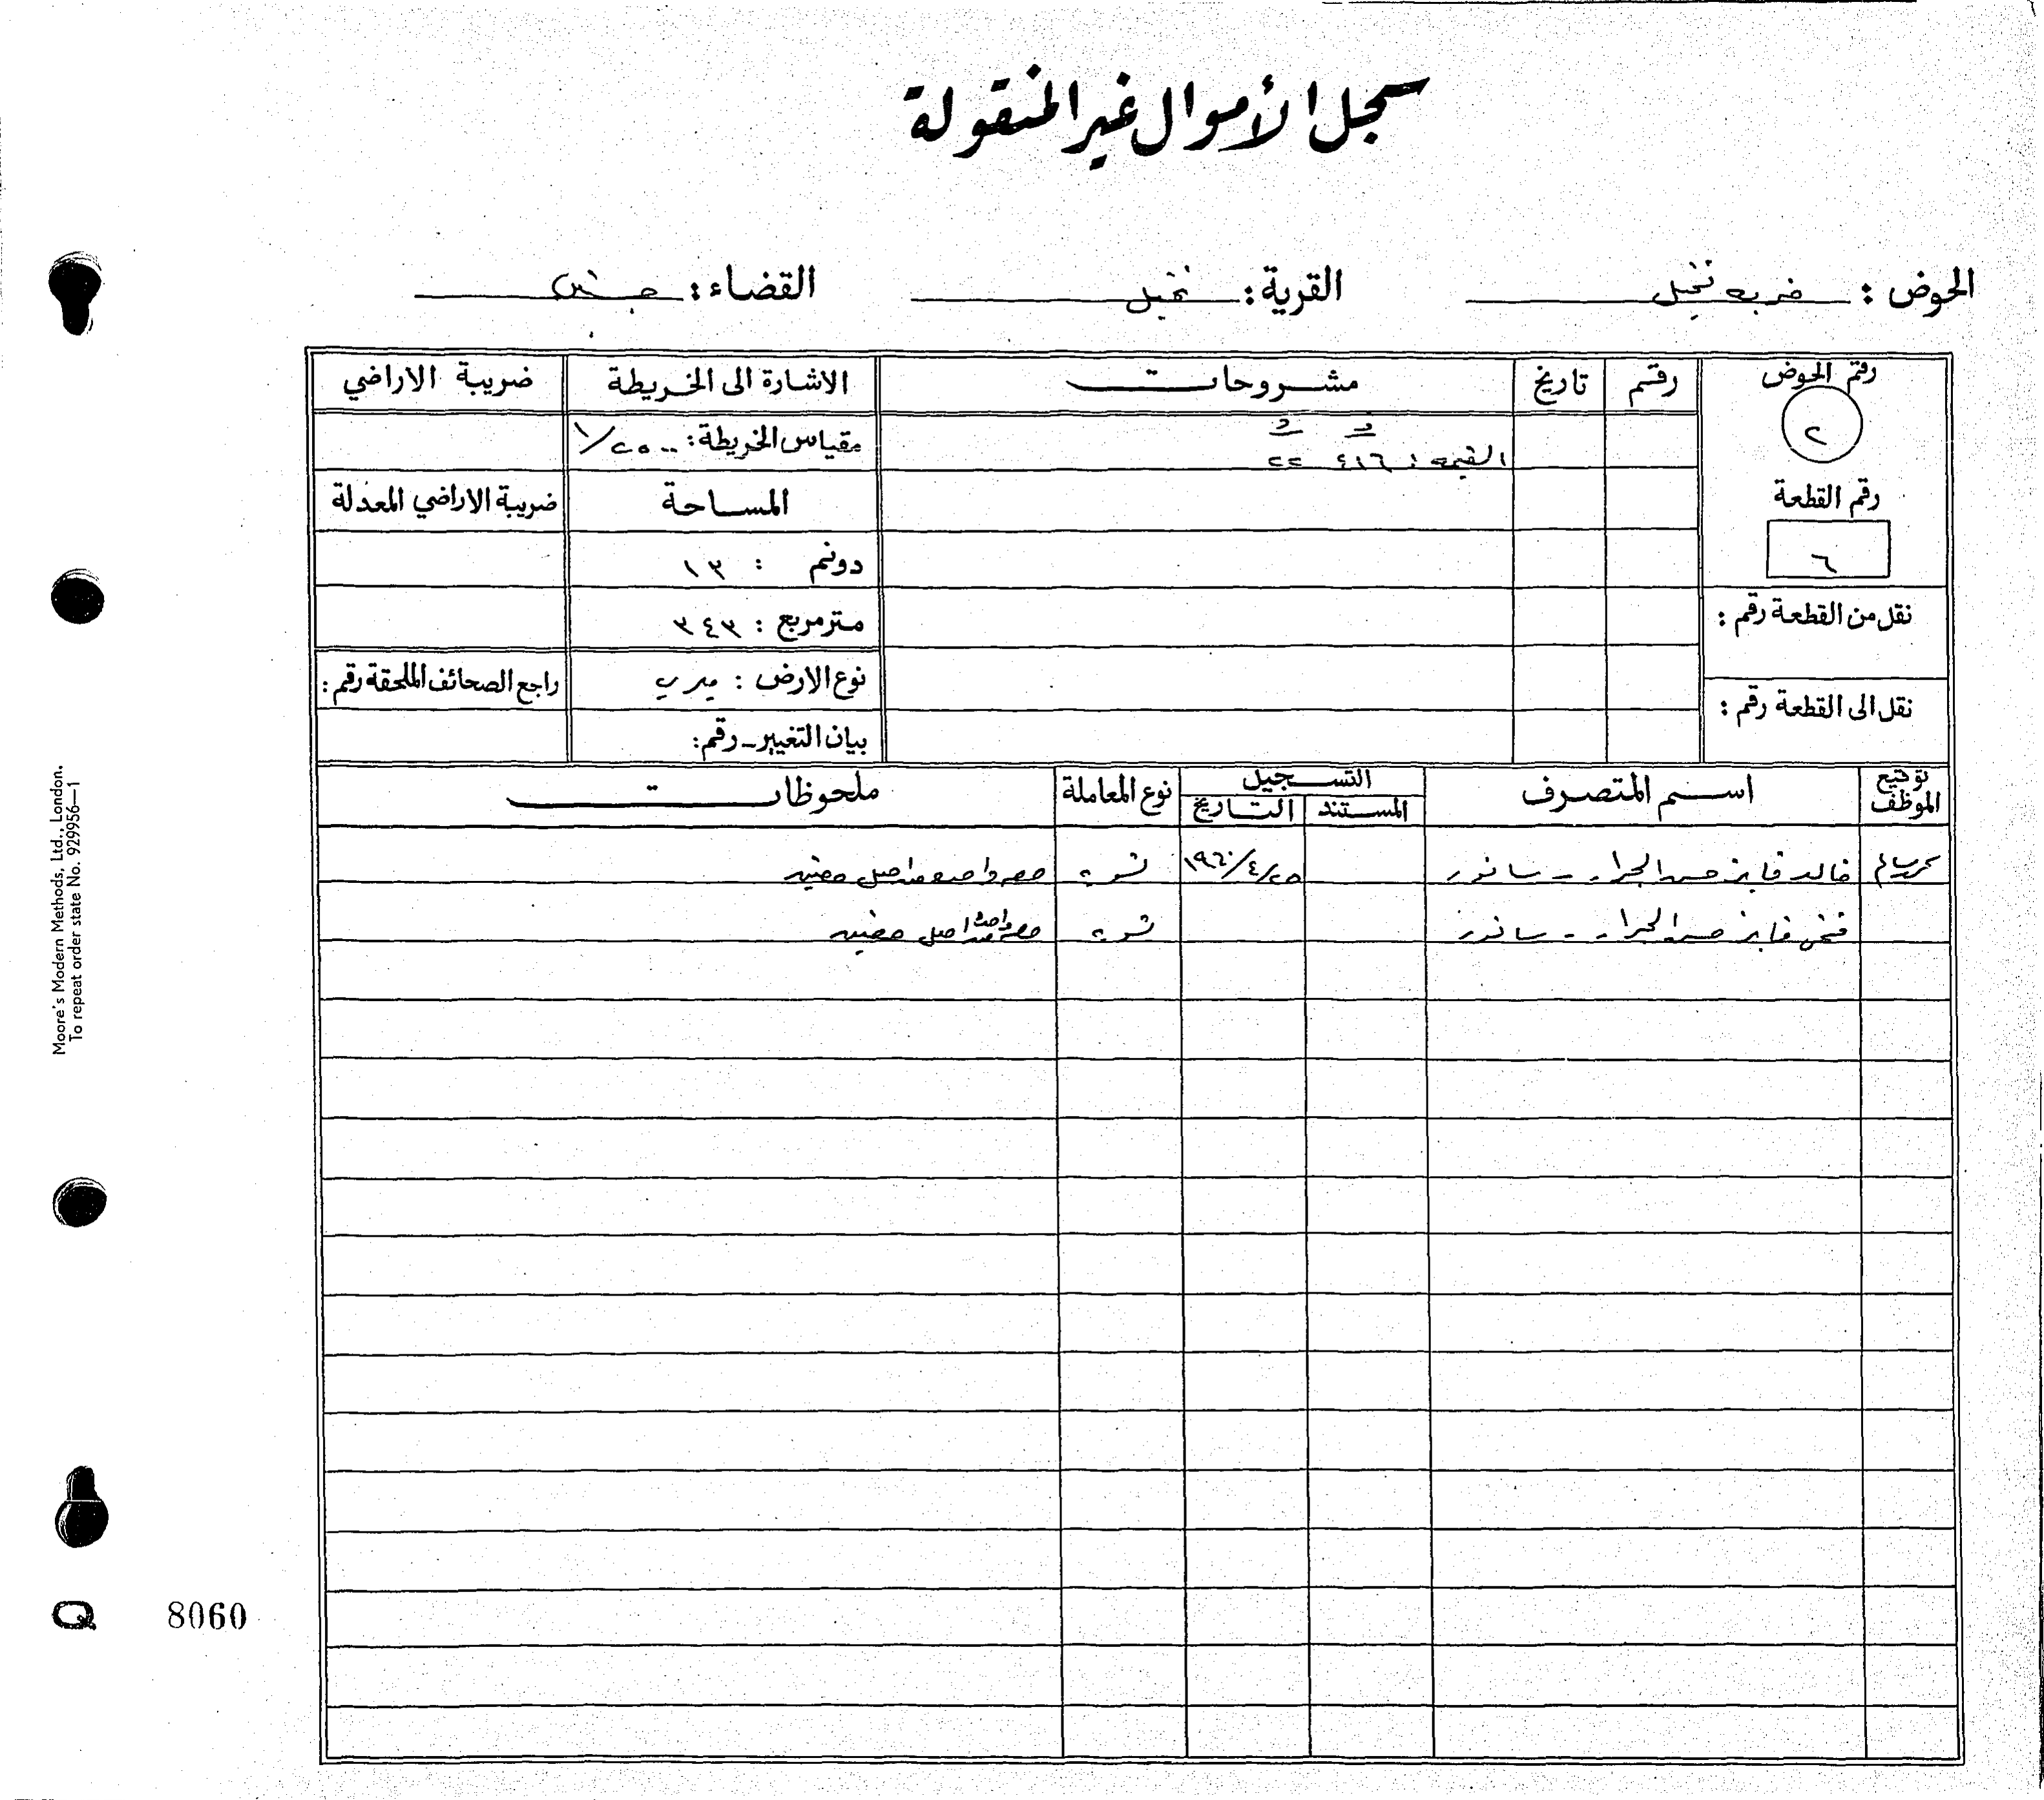 سجل الأموال غير المنقولة
الحوض : خربة نخيل القرية : نخيل القضاء : جنين
رقم الحوض رقم تاريخ مشروحات الاشارة الى الخريطة ضريبة الاراضي
٢
القيمة : ٤١٦ ٢٢ مقياس الخريطة : ١/٢٥٠٠
رقم القطعة المساحة ضريبة الاراضي المعدلة
٦
دونم : ١٣
نقل من القطعة رقم : متر مربع : ٣٤٣
نوع الارض : ميري راجع الصحائف الملحقة رقم :
نقل الى القطعة رقم :
بيان التغيير - رقم :
توقيع الموظف اسم المتصرف التسجيل نوع المعاملة ملحوظات
المستند التاريخ
خالد فايز حسن الجرار - سانور ١٩٦٠/٤/٢٥ تسوية حصة واحدة من اصل حصتين
فتحي فايز حسن الجرار - سانور تسوية حصة واحدة من اصل حصتين
Moore's Modern Methods, Ltd., London.
To repeat order state No. 929956—1
Q 8060